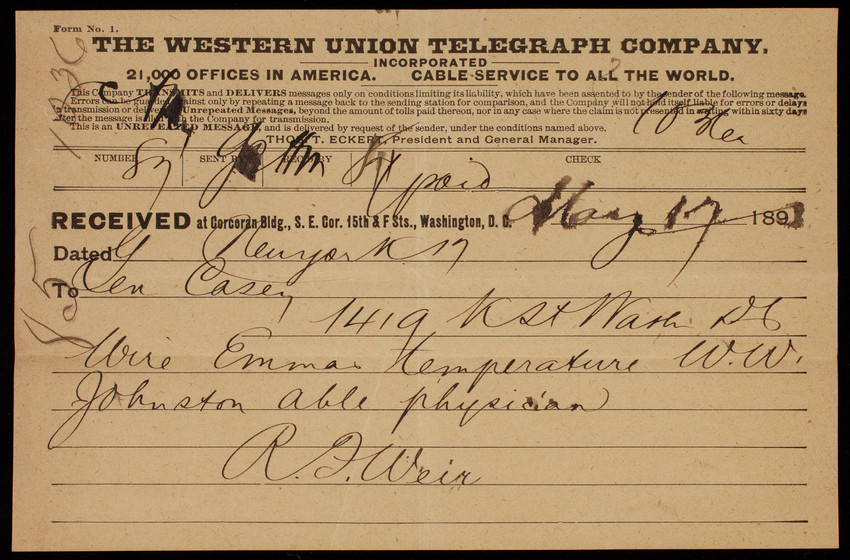 Form No. 1.
THE WESTERN UNION TELEGRAPH COMPANY.
INCORPORATED
21,000 OFFICES IN AMERICA. CABLE SERVICE TO ALL THE WORLD.
This Company TRANSMITS and DELIVERS messages only on conditions limiting its liability, which have been assented to by the sender of the following message.
Errors can be guarded against only by repeating a message back to the sending station for comparison, and the Company will not hold itself liable for errors or delays
in transmission or delivery of Unrepeated Messages, beyond the amount of tolls paid thereon, nor in any case where the claim is not presented in writing within sixty days
after the message is filed with the Company for transmission.
This is an UNREPEATED MESSAGE, and is delivered by request of the sender, under the conditions named above.
THOS. T. ECKERT, President and General Manager.
NUMBER SENT BY REC'D BY CHECK
paid
RECEIVED at Corcoran Bldg., S. E. Cor. 15th & F Sts., Washington, D. C. May 17 1893
Dated New york 17
To Gen Casey
1419 K St Wash DC
Wire Emmas temperature W.W.
Johnston able physician
R. F. Weir